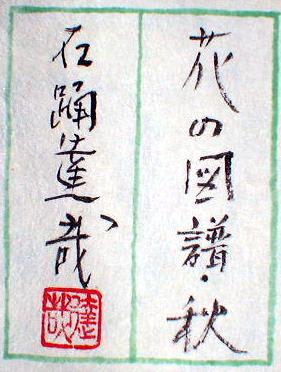 花の図譜・秋
石踊達哉
達哉